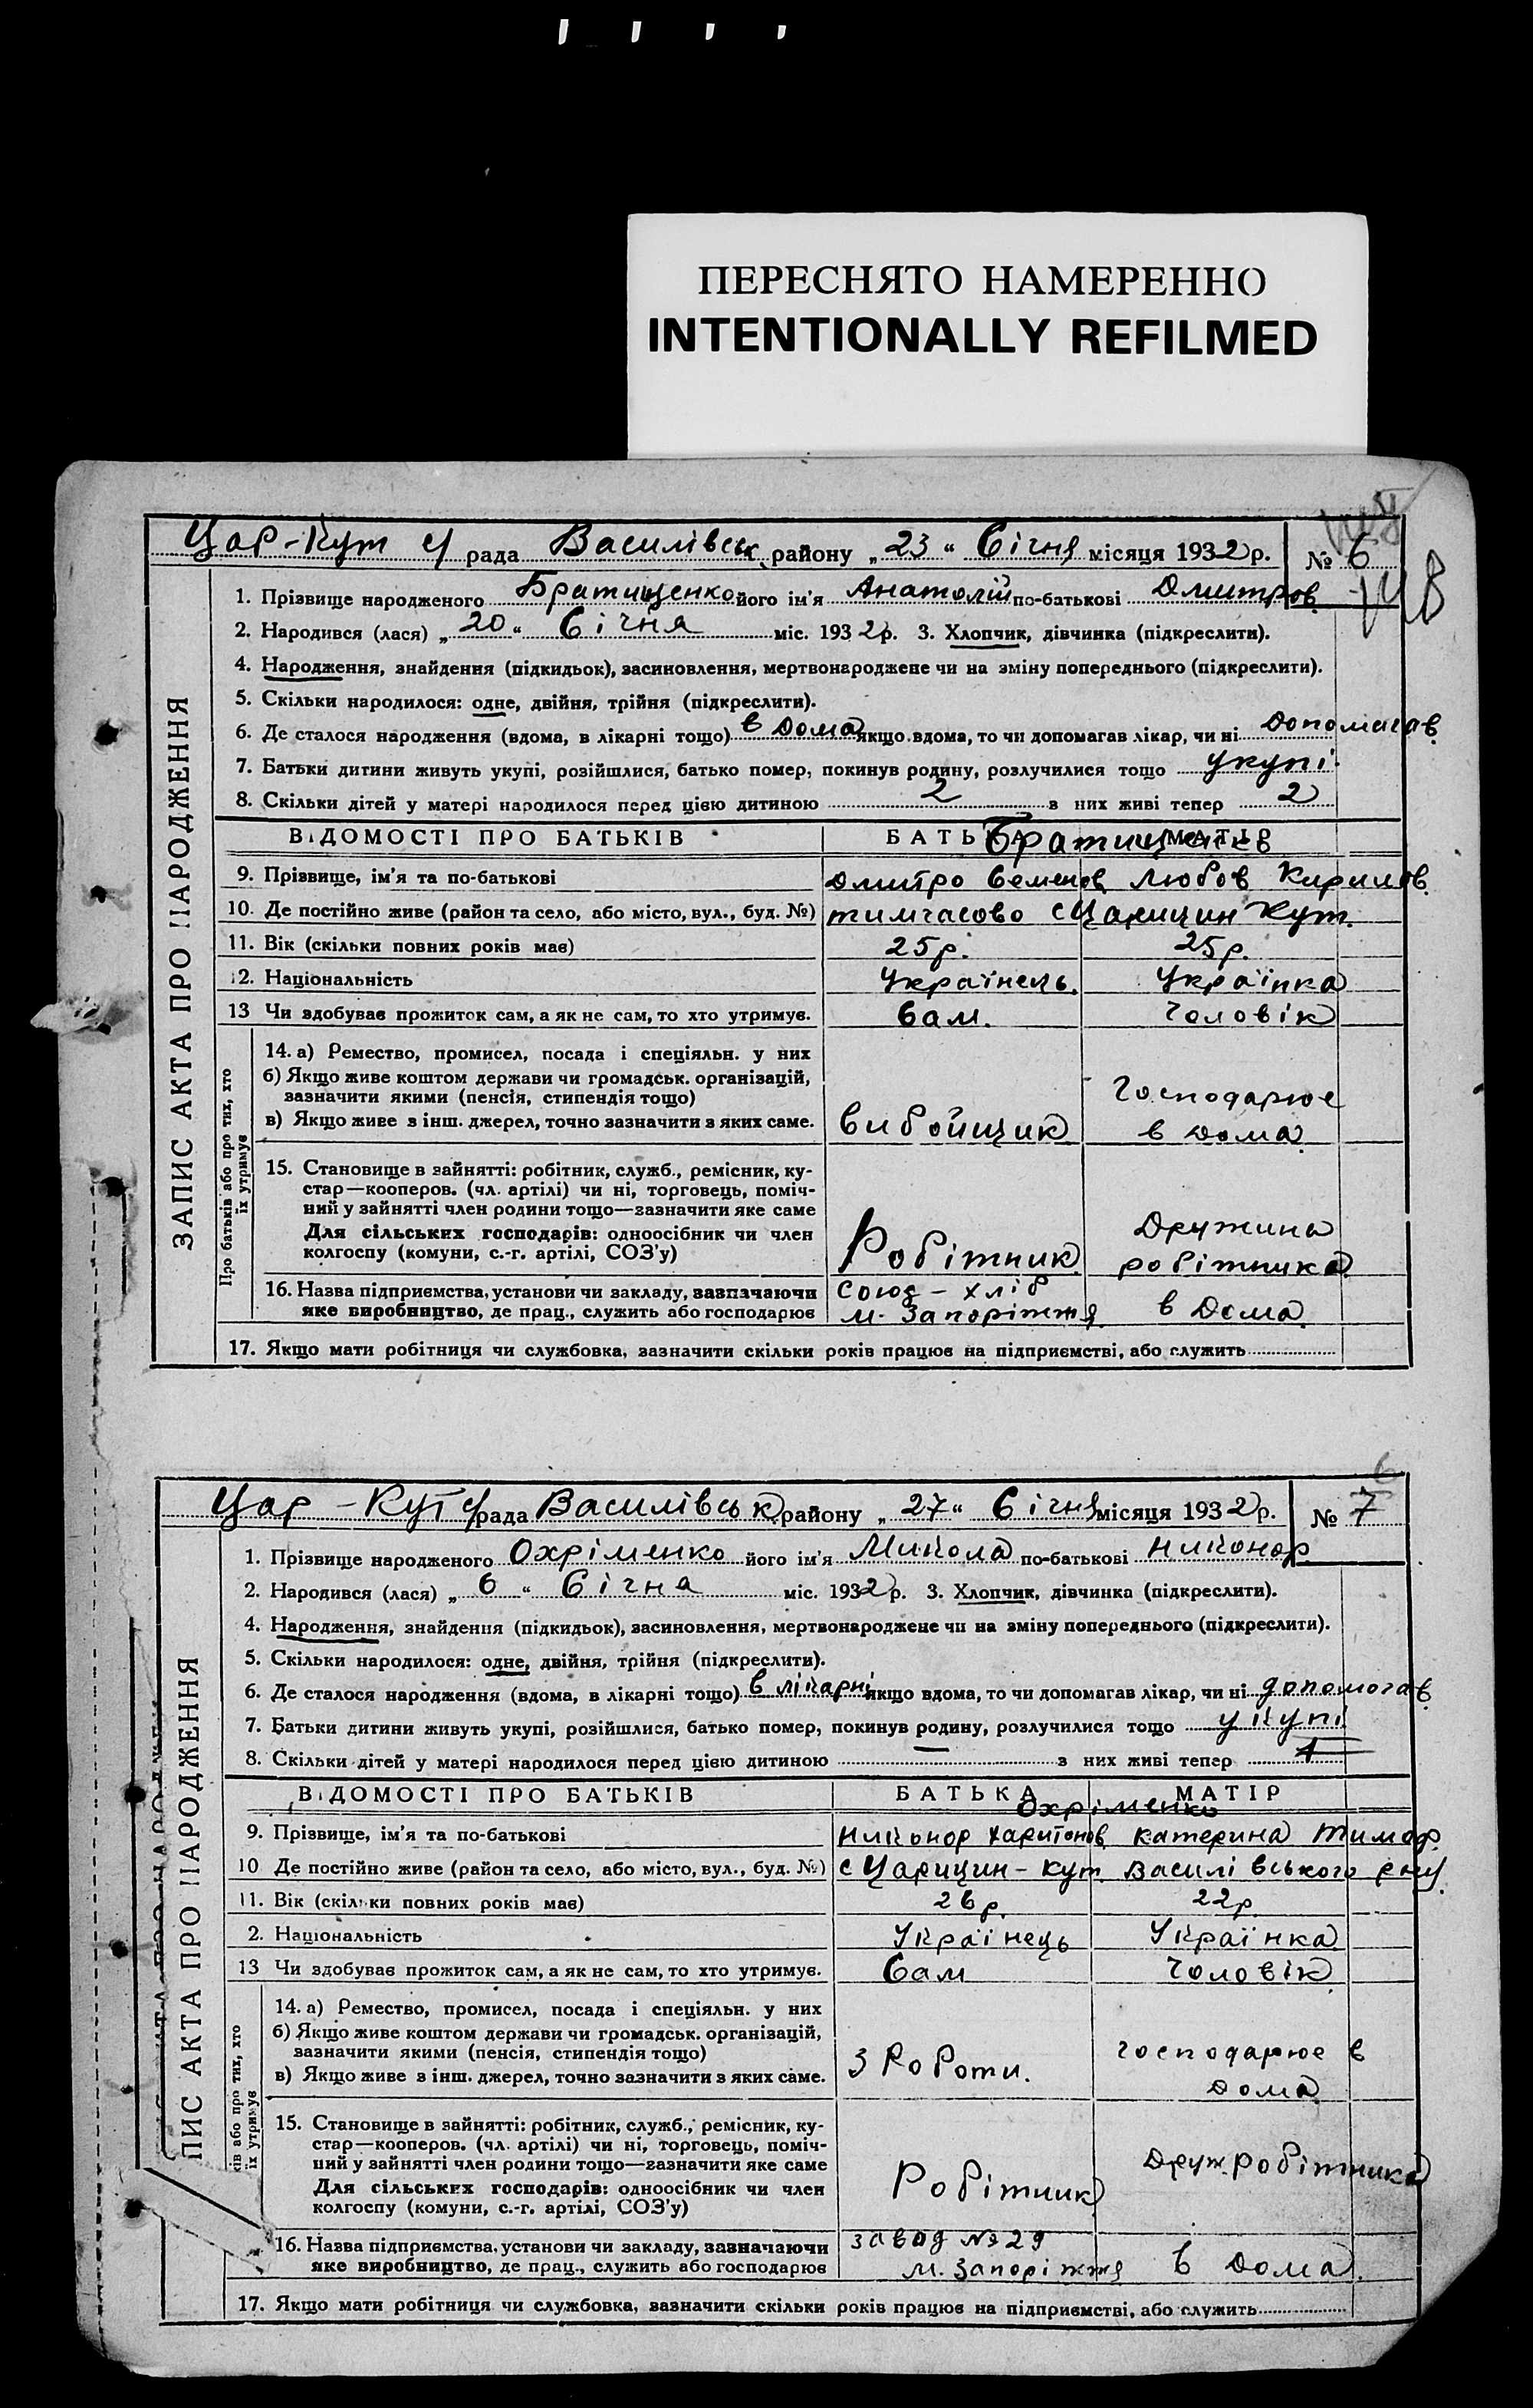 ПЕРЕСНЯТО НАМЕРЕННО
INTENTIONALLY REFILMED
Цар-Кут с/ рада Василівськ. району „23“ Січня місяця 1932 р. № 6
1. Прізвище народженого Братищенко його ім'я Анатолій по-батькові Дмитров.
2. Народився (лася) „20“ Січня міс. 1932 р. 3. Хлопчик, дівчинка (підкреслити).
4. Народження, знайдення (підкидьок), засиновлення, мертвонароджене чи на зміну попереднього (підкреслити).
5. Скільки народилося: одне, двійня, трійня (підкреслити).
6. Де сталося народження (вдома, в лікарні тощо) в дома якщо вдома, то чи допомагав лікар, чи ні допомагав.
7. Батьки дитини живуть укупі, розійшлися, батько помер, покинув родину, розлучилися тощо укупі.
8. Скільки дітей у матері народилося перед цією дитиною 2 з них живі тепер 2
ЗАПИС АКТА ПРО НАРОДЖЕННЯ
ВІДОМОСТІ ПРО БАТЬКІВ БАТЬКА МАТІР
Братищенко
9. Прізвище, ім'я та по-батькові Дмитро Семенов. Любов Кирилов.
10. Де постійно живе (район та село, або місто, вул., буд. №) тимчасово с Царицин Кут.
11. Вік (скільки повних років має) 25 р. 25 р.
12. Національність Українець. Українка
13 Чи здобуває прожиток сам, а як не сам, то хто утримує. Сам. Чоловік
Про батьків або про тих, хто їх утримує
14. а) Ремество, промисел, посада і спеціяльн. у них
б) Якщо живе коштом держави чи громадськ. організацій,
зазначити якими (пенсія, стипендія тощо)
в) Якщо живе з інш. джерел, точно зазначити з яких саме. вибойщик Господарює в дома
15. Становище в зайнятті: робітник, служб., ремісник, ку-
стар—кооперов. (чл. артілі) чи ні, торговець, поміч-
ний у зайнятті член родини тощо—зазначити яке саме
Для сільських господарів: одноосібник чи член
колгоспу (комуни, с.-г. артілі, СОЗ'у) Робітник Дружина робітника
16. Назва підприємства, установи чи закладу, зазначаючи Союз - хліб
яке виробництво, де прац., служить або господарює м. Запоріжжя. в дома.
17. Якщо мати робітниця чи службовка, зазначити скільки років працює на підприємстві, або служить
Цар - Кут с/ рада Василівськ. району „27“ Січня місяця 1932 р. № 7
1. Прізвище народженого Охріменко його ім'я Микола по-батькові Никонор
2. Народився (лася) „6“ Січня міс. 1932 р. 3. Хлопчик, дівчинка (підкреслити).
4. Народження, знайдення (підкидьок), засиновлення, мертвонароджене чи на зміну попереднього (підкреслити).
5. Скільки народилося: одне, двійня, трійня (підкреслити).
6. Де сталося народження (вдома, в лікарні тощо) в лікарні якщо вдома, то чи допомагав лікар, чи ні допомогав.
7. Батьки дитини живуть укупі, розійшлися, батько помер, покинув родину, розлучилися тощо укупі
8. Скільки дітей у матері народилося перед цією дитиною з них живі тепер 1
ПИС АКТА ПРО НАРОДЖЕННЯ
ВІДОМОСТІ ПРО БАТЬКІВ БАТЬКА МАТІР
Охріменко
9. Прізвище, ім'я та по-батькові Никонор Харитонов. Катерина Тимоф.
10 Де постійно живе (район та село, або місто, вул., буд. №) с Царицин - Кут. Василівського р-ну.
11. Вік (скільки повних років має) 26 р. 22 р.
2. Національність Українець Українка
13 Чи здобуває прожиток сам, а як не сам, то хто утримує. Сам Чоловік
ків або про тих, хто їх утримує
14. а) Ремество, промисел, посада і спеціяльн. у них
б) Якщо живе коштом держави чи громадськ. організацій,
зазначити якими (пенсія, стипендія тощо)
в) Якщо живе з інш. джерел, точно зазначити з яких саме. З Роботи. господарює в дома
15. Становище в зайнятті: робітник, служб., ремісник, ку-
стар—кооперов. (чл. артілі) чи ні, торговець, поміч-
ний у зайнятті член родини тощо—зазначити яке саме
Для сільських господарів: одноосібник чи член
колгоспу (комуни, с.-г. артілі, СОЗ'у) Робітник Друж. робітника
16. Назва підприємства, установи чи закладу, зазначаючи завод № 29
яке виробництво, де прац., служить або господарює м. Запоріжжя в дома.
17. Якщо мати робітниця чи службовка, зазначити скільки років працює на підприємстві, або служить